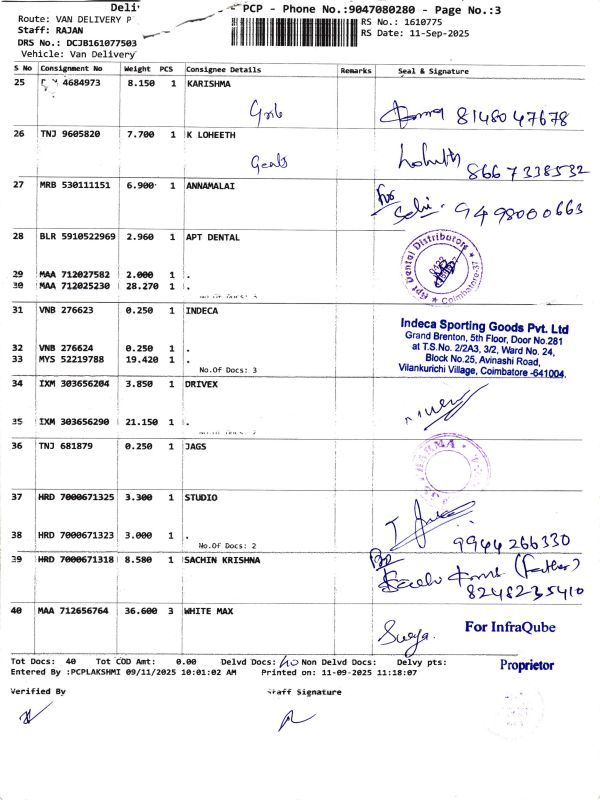 PCP - Phone No.:9047080280 - Page No.:3
Route: VAN DELIVERY P
RS No.: 1610775
Staff: RAJAN
RS Date: 11-Sep-2025
DRS No.: DCJB161077503
Vehicle: Van Delivery
S No Consignment No Weight PCS Consignee Details Remarks Seal & Signature
25 4684973 8.150 1 KARISHMA
8148047678
26 TNJ 9605820 7.700 1 K LOHEETH
Lohith
8667338532
27 MRB 530111151 6.900 1 ANNAMALAI
For
Selvi. 9498000663
28 BLR 5910522969 2.960 1 APT DENTAL
Apt Dental Distributors
Coimbatore-37
29 MAA 712027582 2.000 1 .
30 MAA 712025230 28.270 1 .
No.Of Docs: 3
31 VNB 276623 0.250 1 INDECA
Indeca Sporting Goods Pvt. Ltd
Grand Brenton, 5th Floor, Door No.281
at T.S.No. 2/2A3, 3/2, Ward No. 24,
Block No.25, Avinashi Road,
Vilankurichi Village, Coimbatore -641004.
32 VNB 276624 0.250 1 .
33 MYS 52219788 19.420 1 .
No.Of Docs: 3
34 IXM 303656204 3.850 1 DRIVEX
35 IXM 303656290 21.150 1 .
No.Of Docs: 2
36 TNJ 681879 0.250 1 JAGS
37 HRD 7000671325 3.300 1 STUDIO
38 HRD 7000671323 3.000 1 .
No.Of Docs: 2
9944266330
39 HRD 7000671318 8.580 1 SACHIN KRISHNA
(Father)
8248235410
40 MAA 712656764 36.600 3 WHITE MAX
Surya.
For InfraQube
Proprietor
Tot Docs: 40 Tot COD Amt: 0.00 Delvd Docs: 40 Non Delvd Docs: Delvy pts:
Entered By :PCPLAKSHMI 09/11/2025 10:01:02 AM Printed on: 11-09-2025 11:18:07
Verified By
Staff Signature